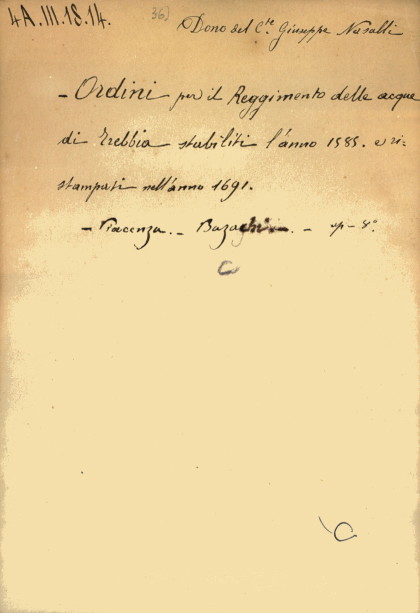 4A.III.18.14.
36)
Dono del C.te Giuseppe Nasalli
- Ordini per il Reggimento delle acque
di Trebbia stabiliti l'anno 1585. e ri=
stampati nell'anno 1691.
- Piacenza. - Bazachi - - 8°
C
C